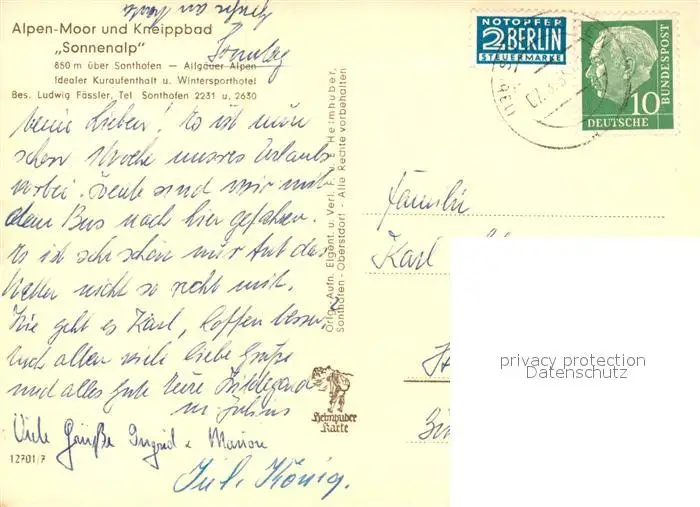 Alpen-Moor und Kneippbad
„Sonnenalp“
850 m über Sonthofen — Allgäuer Alpen
Idealer Kuraufenthalt u. Wintersporthotel
Bes. Ludwig Fässler, Tel Sonthofen 2231 u. 2630
Sonntag
Meine Lieben! Es ist nun
schon Woche unseres Urlaubs
vorbei. Heute sind wir mit
dem Bus nach hier gefahren.
Es ist sehr schön nur tut das
Wetter nicht so recht mit.
Wie geht es Karl, hoffen besser?
Euch allen viele liebe Grüße
und alles Gute Eure Hildegard
u. Julius
Viele Grüße Ingrid u. Marion
Jul. König.
12701/7
Orig. Aufn. Eigent. u. Verl. F. u. E. Heimhuber,
Sonthofen - Oberstdorf - Alle Rechte vorbehalten
Heimhuber
Karte
NOTOPFER
2 BERLIN
STEUERMARKE
10
DEUTSCHE
BUNDESPOST
Familie
Karl
privacy protection
Datenschutz